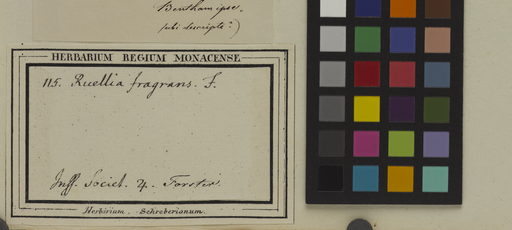 Bentham ipse.
ubi descripta?)
HERBARIUM REGIUM MONACENSE
115. Ruellia fragrans. F.
Inss. Societ. 4. Forster.
Herbarium Schreberianum.